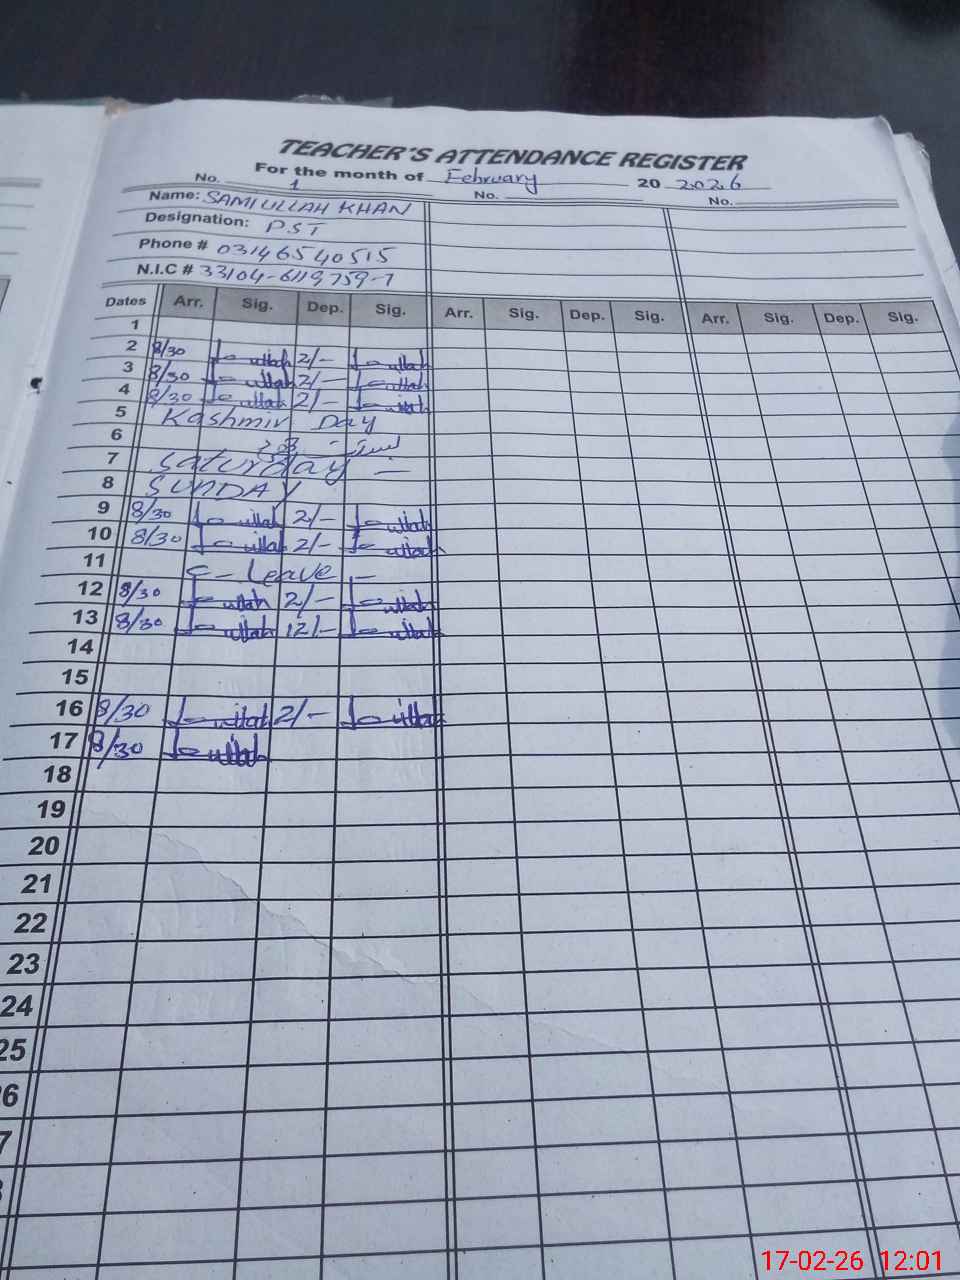 TEACHER'S ATTENDANCE REGISTER
For the month of February 20 2026
No. 1 No. No.
Name: SAMIULLAH KHAN
Designation: P.S.T
Phone # 03146540515
N.I.C # 33104-6119759-7
Dates Arr. Sig. Dep. Sig. Arr. Sig. Dep. Sig. Arr. Sig. Dep. Sig.
1
2 8/30 2/-
3 8/30 2/-
4 8/30 2/-
5 Kashmir Day
6
7 Saturday
8 SUNDAY
9 8/30 2/-
10 8/30 2/-
11 C - Leave -
12 8/30 2/-
13 8/30 12/-
14
15
16 8/30 2/-
17 8/30
18
19
20
21
22
23
24
25
17-02-26 12:01